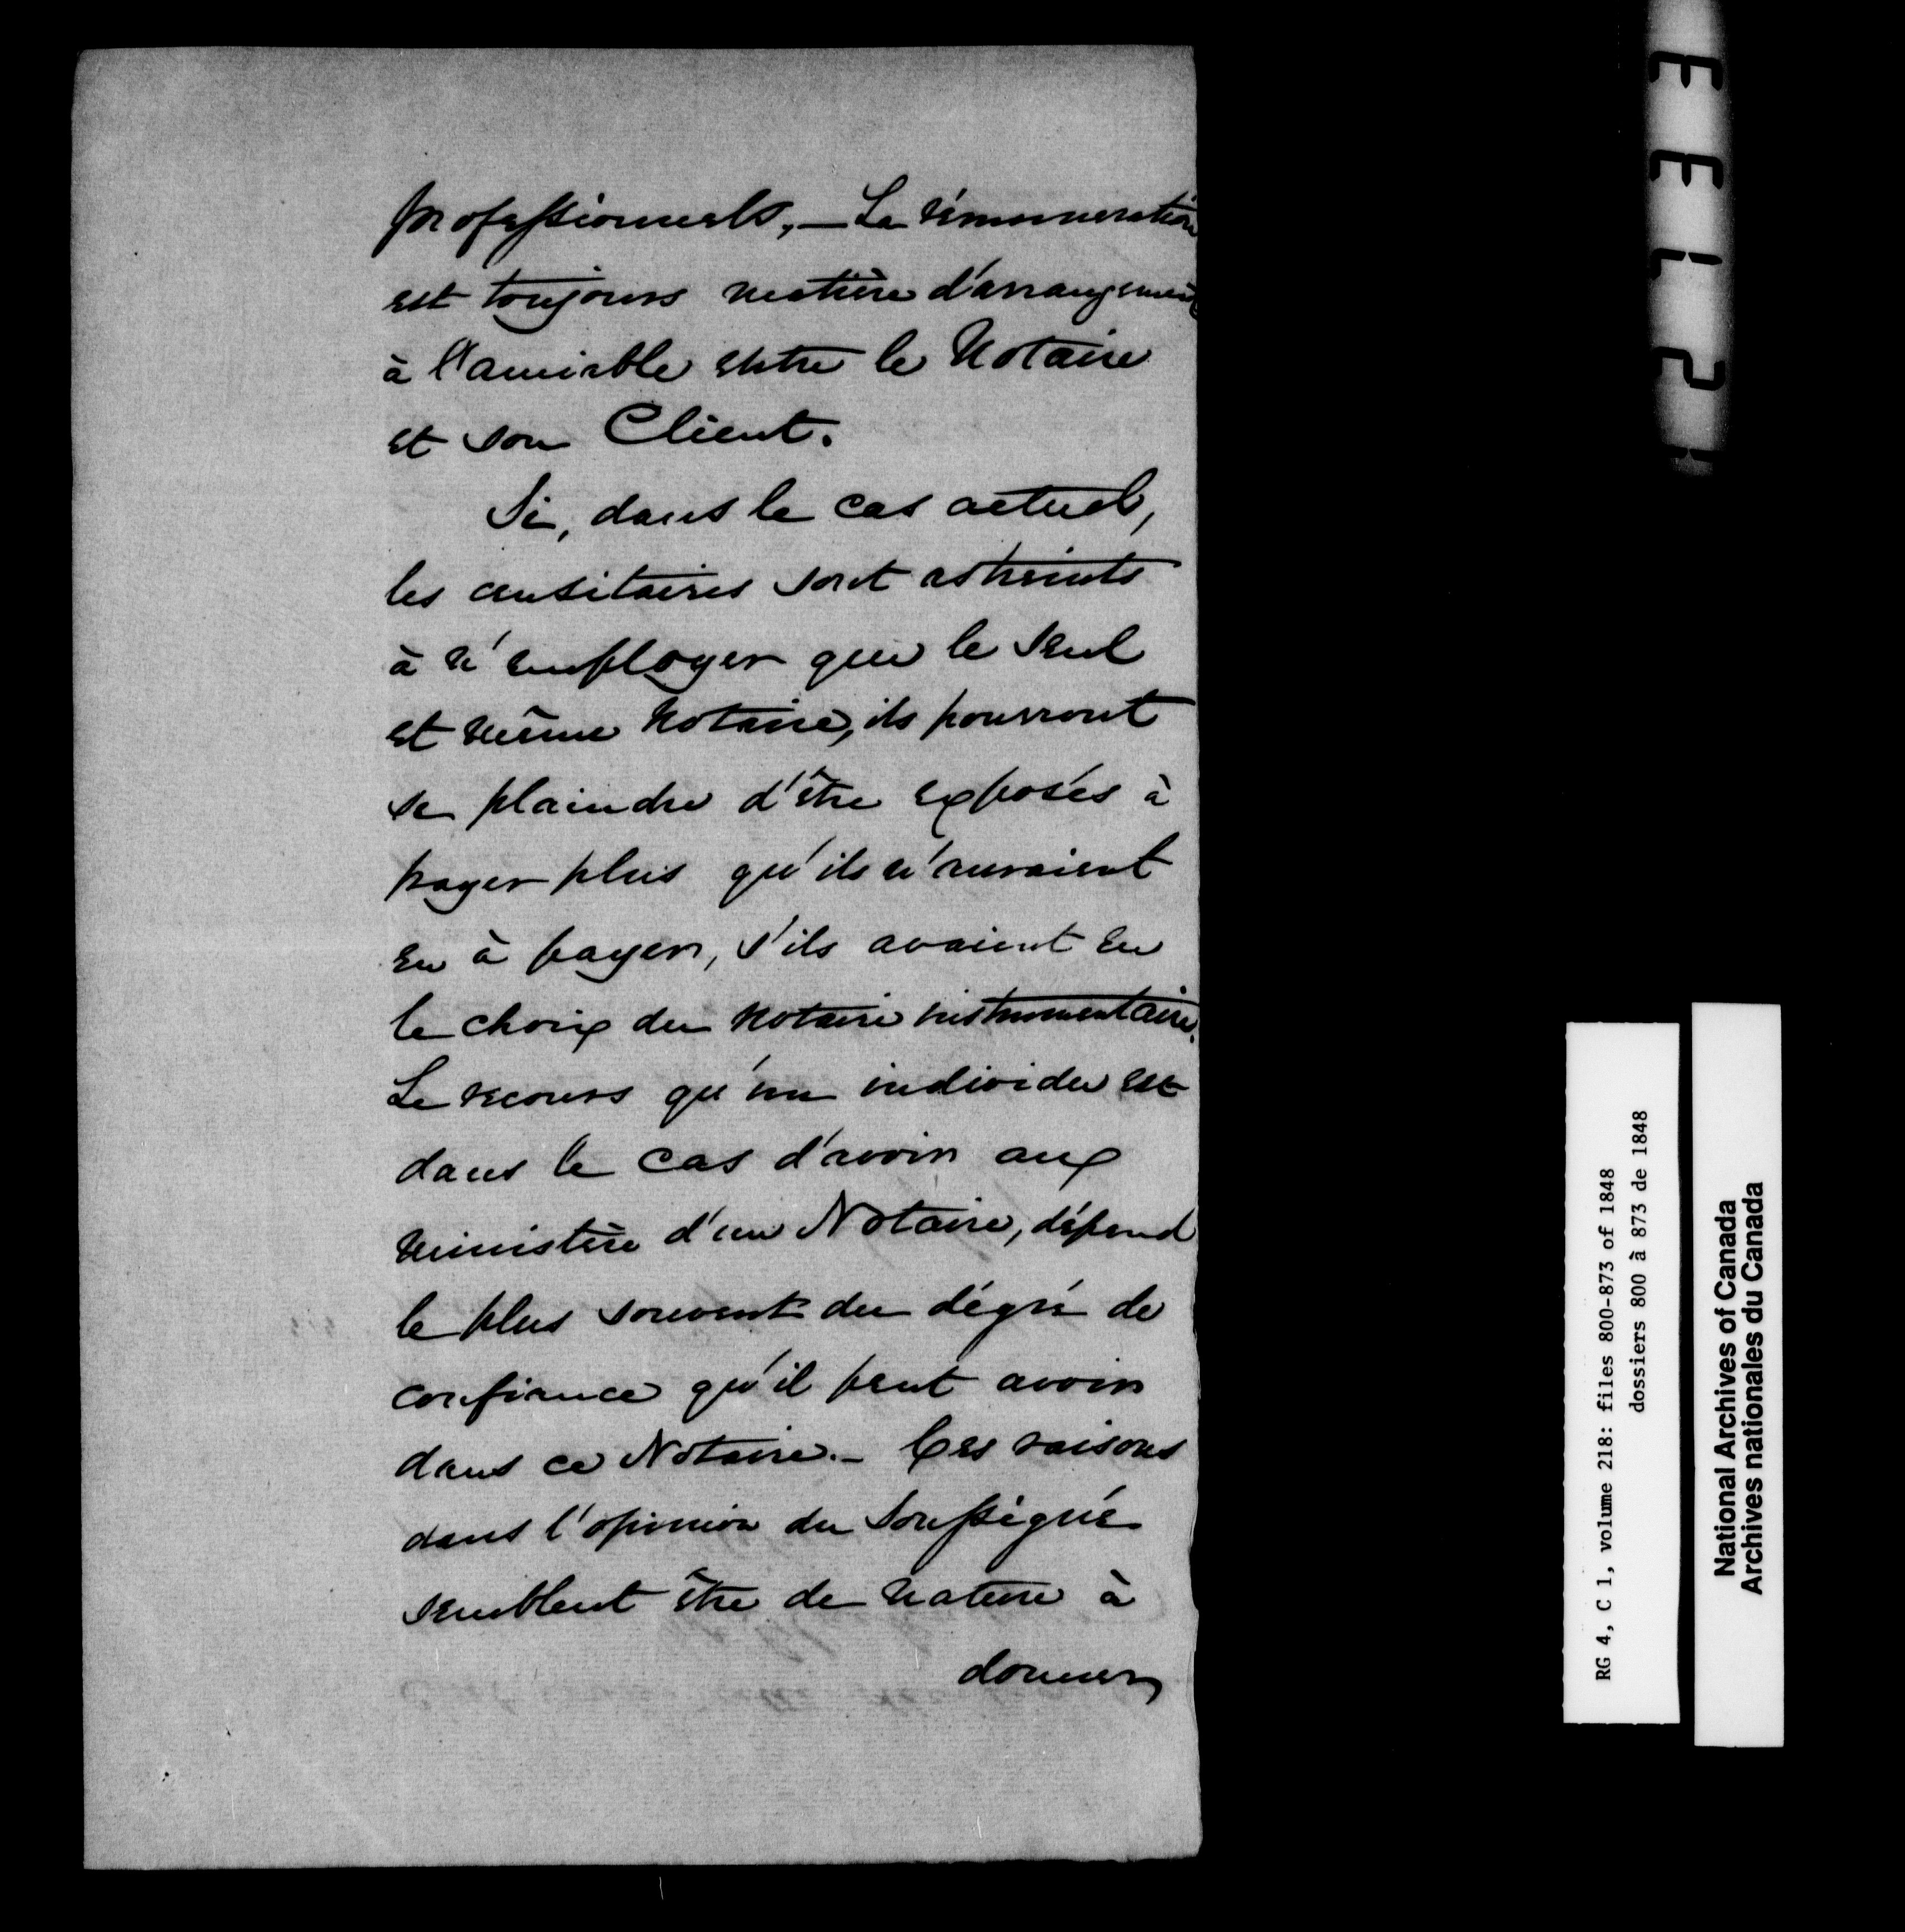 professionnels, — La rémunération
est toujours matière d'arrangement
à l'amiable entre le Notaire
et son Client.
Si, dans le cas actuel,
les censitaires sont astreints
à n'employer que le seul
et même Notaire, ils pourront
se plaindre d'être exposés à
payer plus qu'ils n'auraient
eu à payer, s'ils avaient eu
le choix du Notaire instrumentaire.
Le recours qu'un individu est
dans le cas d'avoir aux
ministère d'un Notaire, dépend
le plus souvent du dégré de
confiance qu'il peut avoir
dans ce Notaire. — Ces raisons
dans l'opinion du Soussigné
semblent être de nature à
donner
RG 4, C 1, volume 218: files 800-873 of 1848
dossiers 800 à 873 de 1848
National Archives of Canada
Archives nationales du Canada